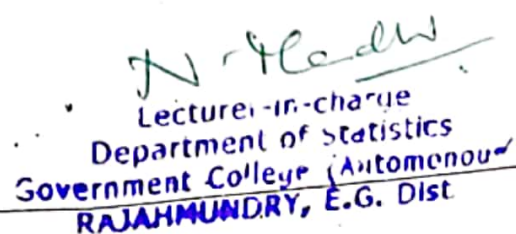 Lecturer-in-charge
Department of Statistics
Government College (Automonou
RAJAHMUNDRY, E.G. Dist